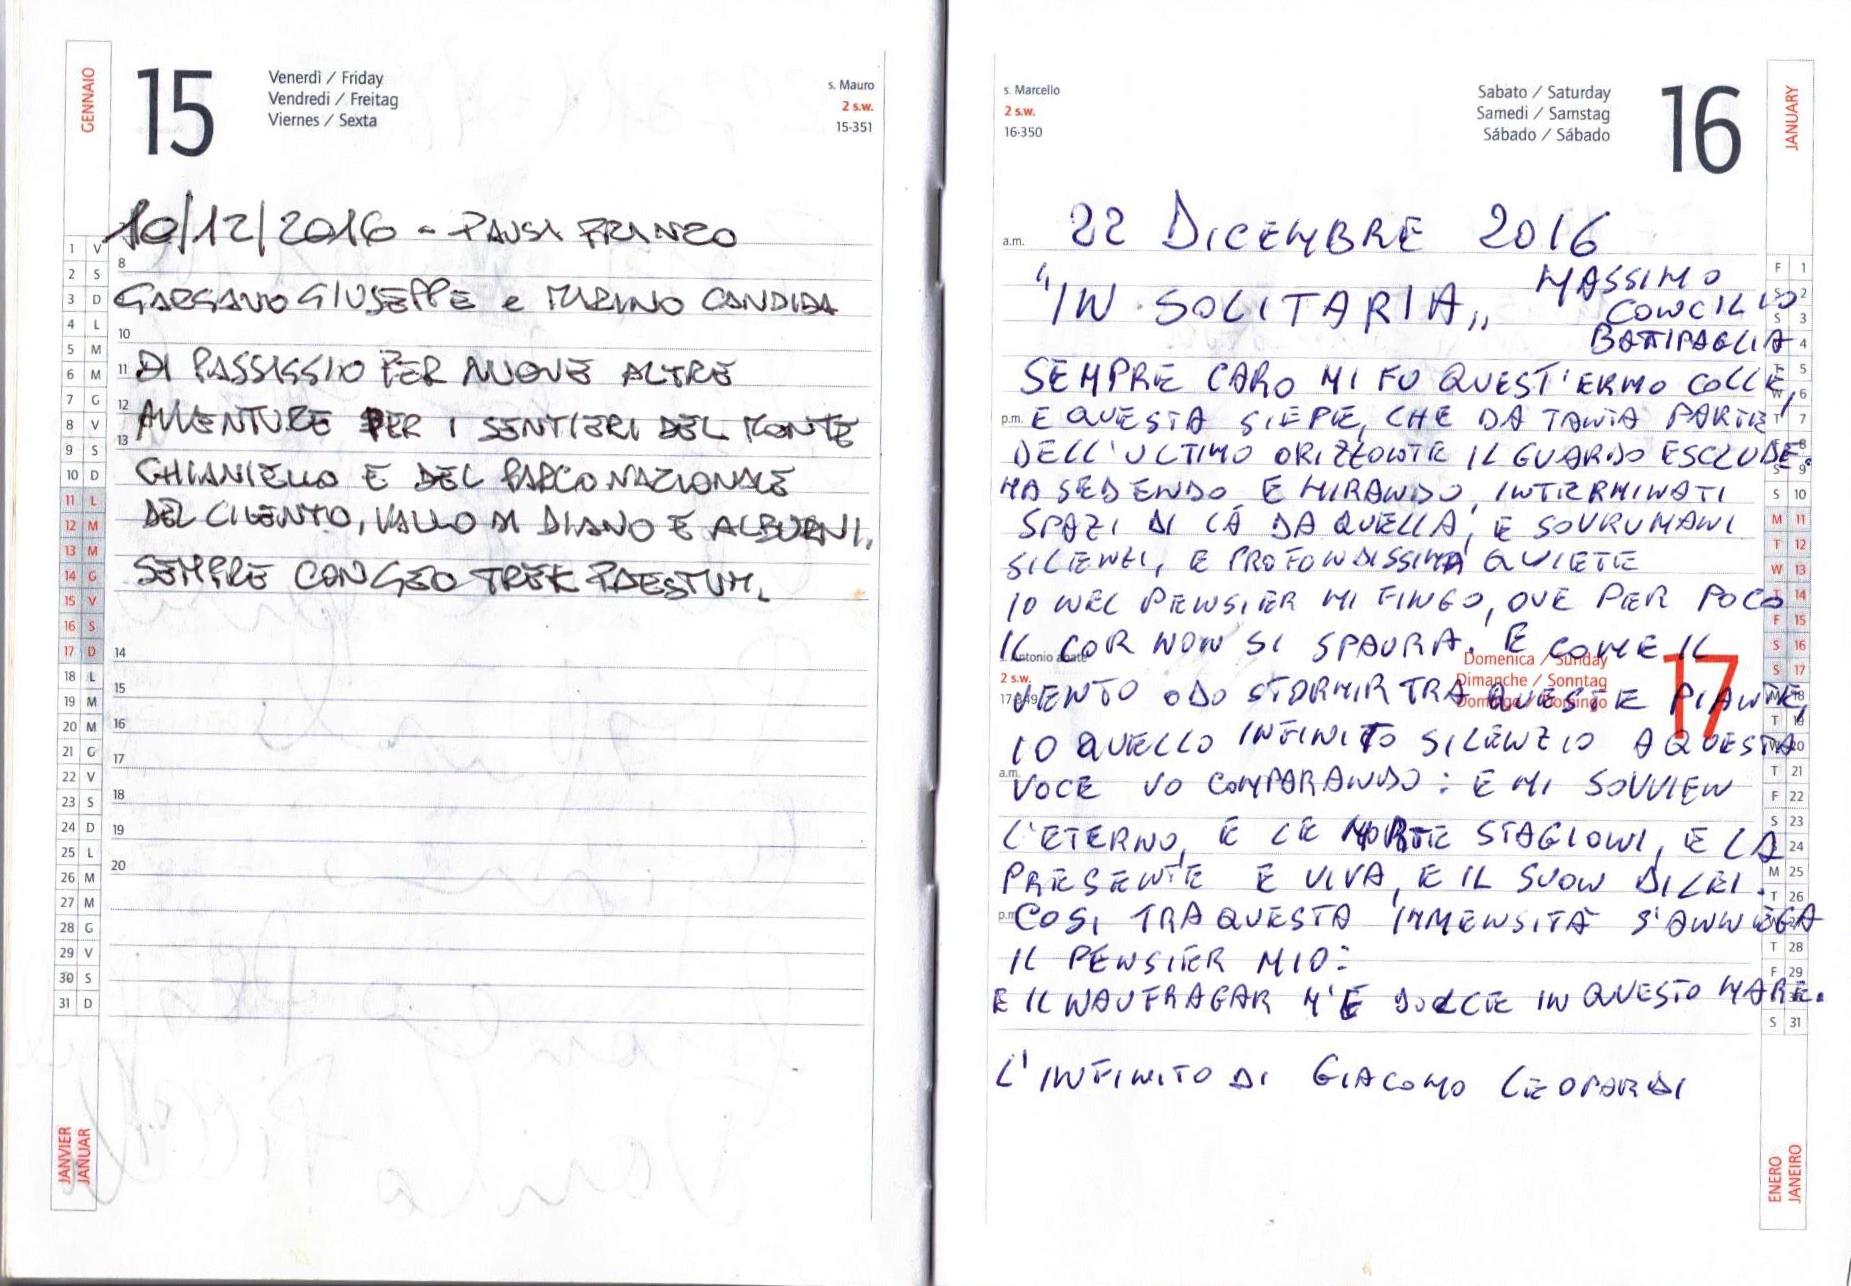 GENNAIO
15
Venerdì / Friday
Vendredi / Freitag
Viernes / Sexta
s. Mauro
2 s.w.
15-351
10/12/2016 - PAUSA PRANZO
GARGANO GIUSEPPE e MARINO CANDIDA
DI PASSAGGIO PER NUOVE ALTRE
AVVENTURE PER I SENTIERI DEL MONTE
CHIANIELLO E DEL PARCO NAZIONALE
DEL CILENTO, VALLO DI DIANO E ALBURNI,
SEMPRE CON GEO TREK PAESTUM.
8
10
11
12
13
14
15
16
17
18
19
20
1 V
2 S
3 D
4 L
5 M
6 M
7 G
8 V
9 S
10 D
11 L
12 M
13 M
14 G
15 V
16 S
17 D
18 L
19 M
20 M
21 G
22 V
23 S
24 D
25 L
26 M
27 M
28 G
29 V
30 S
31 D
JANVIER
JANUAR
s. Marcello
2 s.w.
16-350
Sabato / Saturday
Samedi / Samstag
Sábado / Sábado
16
JANUARY
a.m.
22 DICEMBRE 2016
"IN SOLITARIA„ MASSIMO
CONCILIO
BATTIPAGLIA
SEMPRE CARO MI FU QUEST'ERMO COLLE,
p.m.
E QUESTA SIEPE, CHE DA TANTA PARTE
DELL'ULTIMO ORIZZONTE IL GUARDO ESCLUDE.
MA SEDENDO E MIRANDO, INTERMINATI
SPAZI DI LÀ DA QUELLA, E SOVRUMANI
SILENZI, E PROFONDISSIMA QUIETE
IO NEL PENSIER MI FINGO, OVE PER POCO
IL COR NON SI SPAURA. E COME IL
s. Antonio abate
2 s.w.
17-349
Domenica / Sunday
Dimanche / Sonntag
Domingo / Domingo
17
VENTO ODO STORMIR TRA QUESTE PIANTE,
IO QUELLO INFINITO SILENZIO A QUESTA
a.m.
VOCE VO COMPARANDO: E MI SOVVIEN
L'ETERNO, E LE MORTE STAGIONI, E LA
PRESENTE E VIVA, E IL SUON DI LEI.
p.m.
COSI TRA QUESTA IMMENSITÀ S'ANNEGA
IL PENSIER MIO:
E IL NAUFRAGAR M'È DOLCE IN QUESTO MARE.
L'INFINITO DI GIACOMO LEOPARDI
F 1
S 2
S 3
4
T 5
W 6
T 7
F 8
S 9
S 10
M 11
T 12
W 13
T 14
F 15
S 16
S 17
M 18
T 19
W 20
T 21
F 22
S 23
24
M 25
T 26
W 27
T 28
F 29
S 31
ENERO
JANEIRO